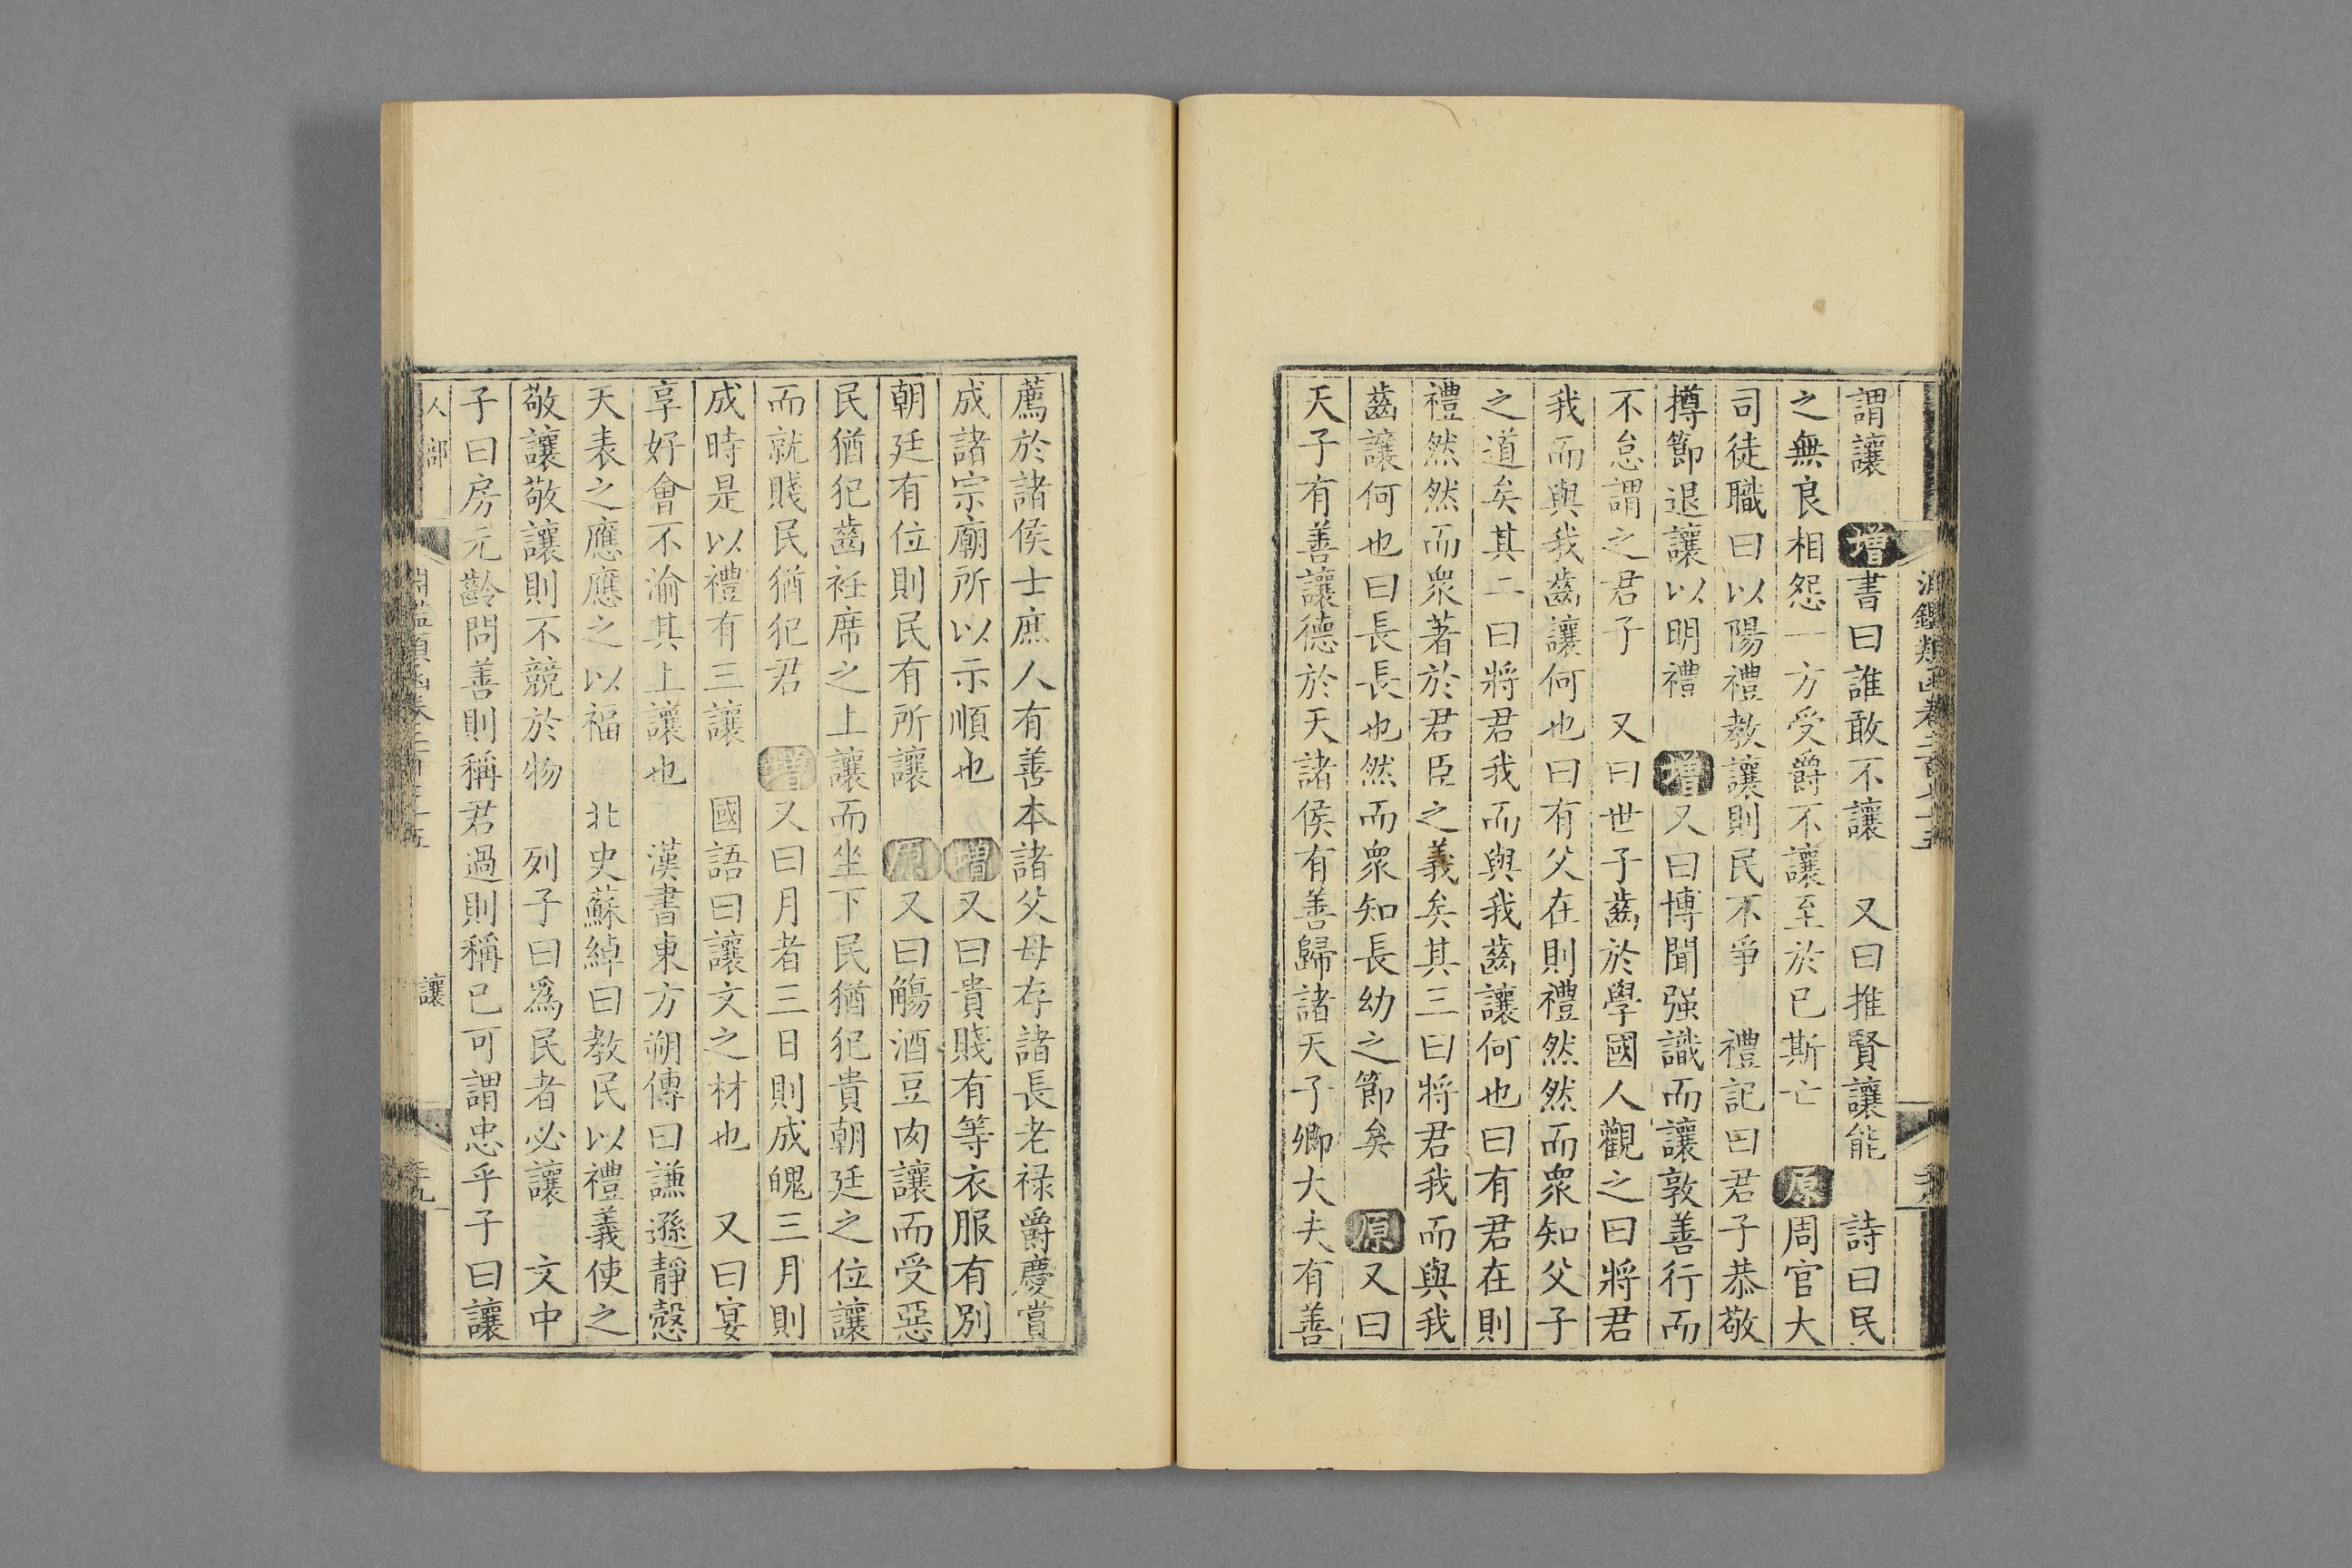 謂讓　增書曰誰敢不讓　又曰推賢讓能　詩曰民
之無良相怨一方受爵不讓至於已斯亡　原周官大
司徒職曰以陽禮教讓則民不爭　禮記曰君子恭敬
撙節退讓以明禮　增又曰博聞强識而讓敦善行而
不怠謂之君子　又曰世子齒於學國人觀之曰將君
我而與我齒讓何也曰有父在則禮然然而衆知父子
之道矣其二曰將君我而與我齒讓何也曰有君在則
禮然然而衆著於君臣之義矣其三曰將君我而與我
齒讓何也曰長長也然而衆知長幼之節矣　原又曰
天子有善讓德於天諸侯有善歸諸天子卿大夫有善
薦於諸侯士庶人有善本諸父母存諸長老禄爵慶賞
成諸宗廟所以示順也　增又曰貴賤有等衣服有別
朝廷有位則民有所讓　原又曰觴酒豆肉讓而受惡
民猶犯齒衽席之上讓而坐下民猶犯貴朝廷之位讓
而就賤民猶犯君　增又曰月者三日則成魄三月則
成時是以禮有三讓　國語曰讓文之材也　又曰宴
享好會不渝其上讓也　漢書東方朔傳曰謙遜靜慤
天表之應應之以福　北史蘇綽曰教民以禮義使之
敬讓敬讓則不競於物　列子曰爲民者必讓　文中
子曰房元齡問善則稱君過則稱已可謂忠乎子曰讓
人部
讓